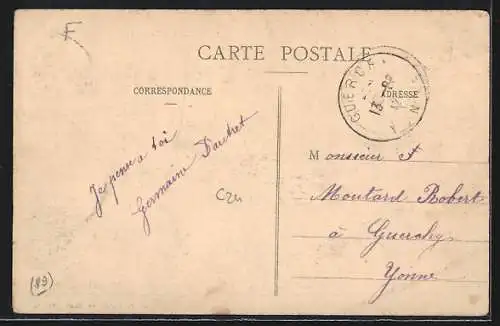 F
CARTE POSTALE
CORRESPONDANCE
ADRESSE
GUERCHY
YONNE
13
Je pense a toi
Germaine
Monsieur
Moutard Robert
à Guerchy
Yonne
C24
(89)